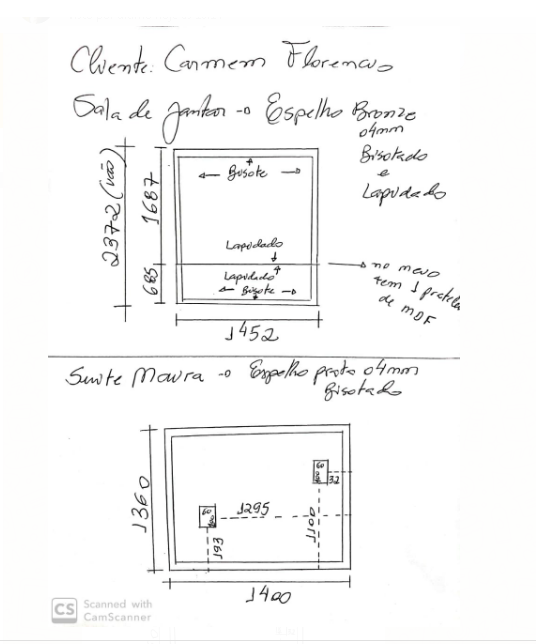 Cliente: Carmem Florencio
Sala de jantar → Espelho Bronze
04mm
Bisotado
e
Lapidado
2372 (vão)
1687
685
← Bisote →
Lapidado
Lapidado
← Bisote →
→ no meio
tem 1 pratele
de MDF
1452
Suite Moura → Espelho prata 04mm
Bisotado
1360
60
32
60
1295
193
1100
1400
CS Scanned with
CamScanner